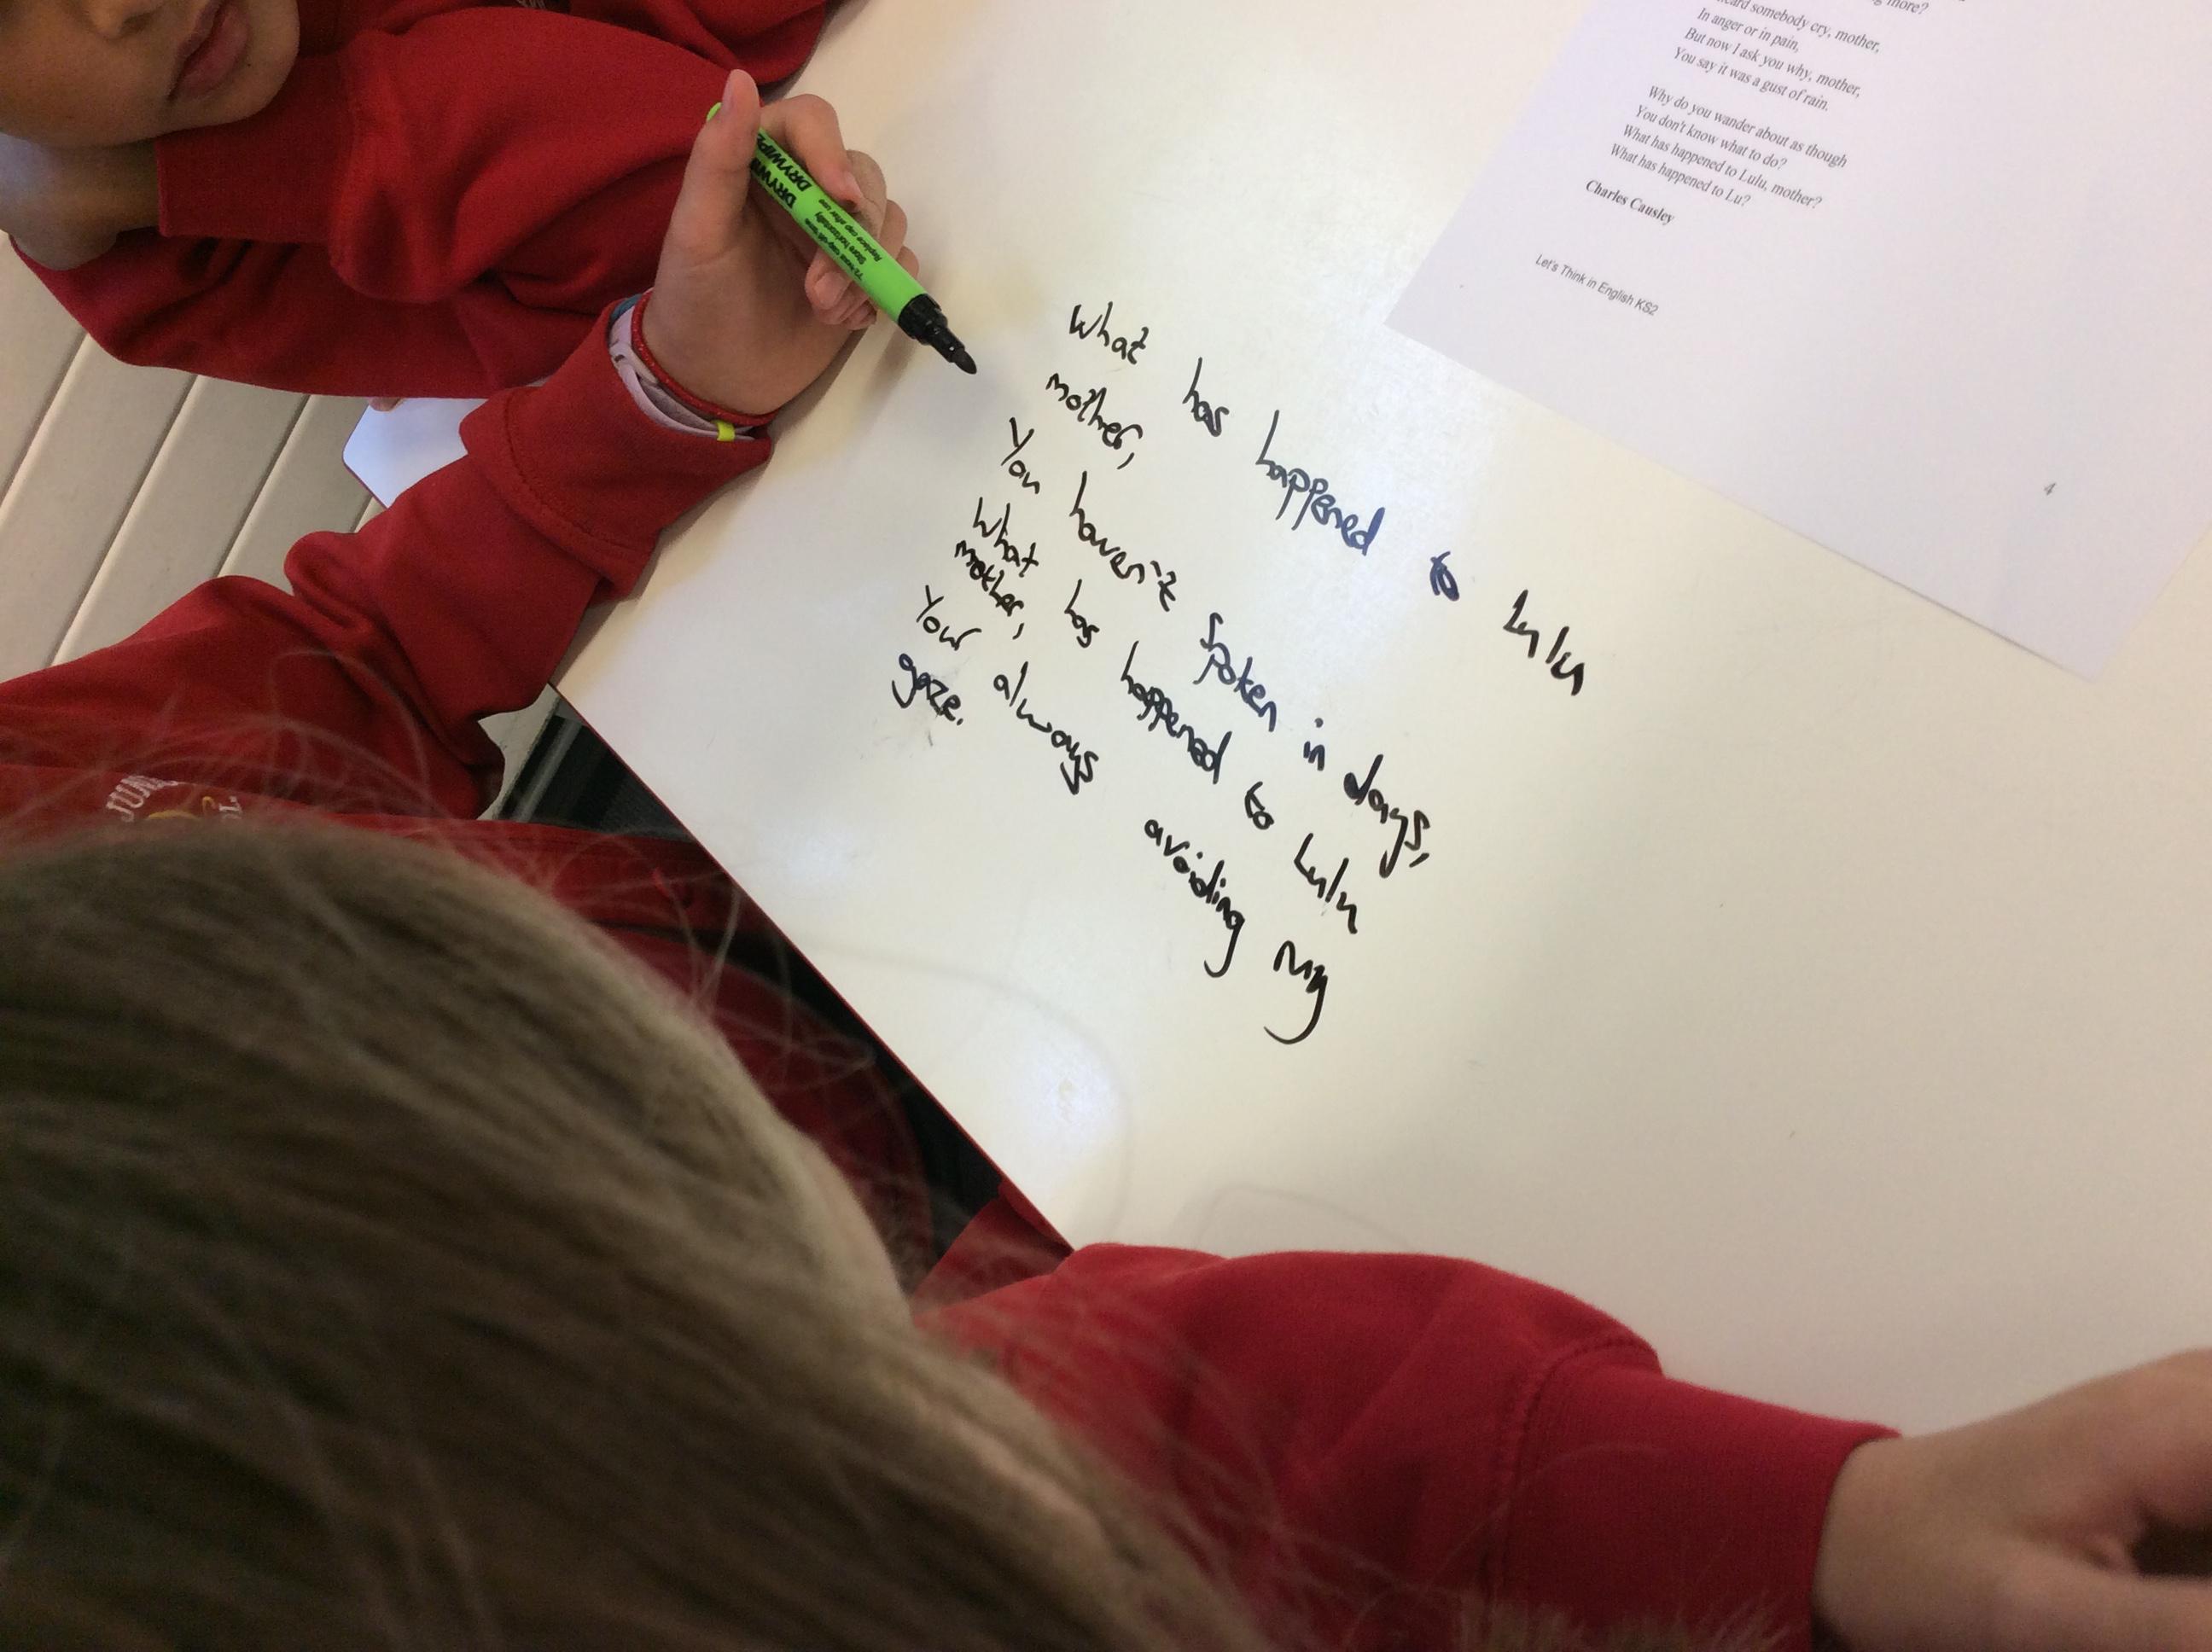 more?
somebody cry, mother,
In anger or in pain,
But now I ask you why, mother,
You say it was a gust of rain.
Why do you wander about as though
You don't know what to do?
What has happened to Lulu, mother?
What has happened to Lu?
Charles Causley
Let's Think in English KS2
4
What has happened to Lulu
mother,
You haven't spoken in days,
What has happened to Lulu
mother,
Your always avoiding my
gaze.
DRYWIPE
Store horizontally
Replace cap after use